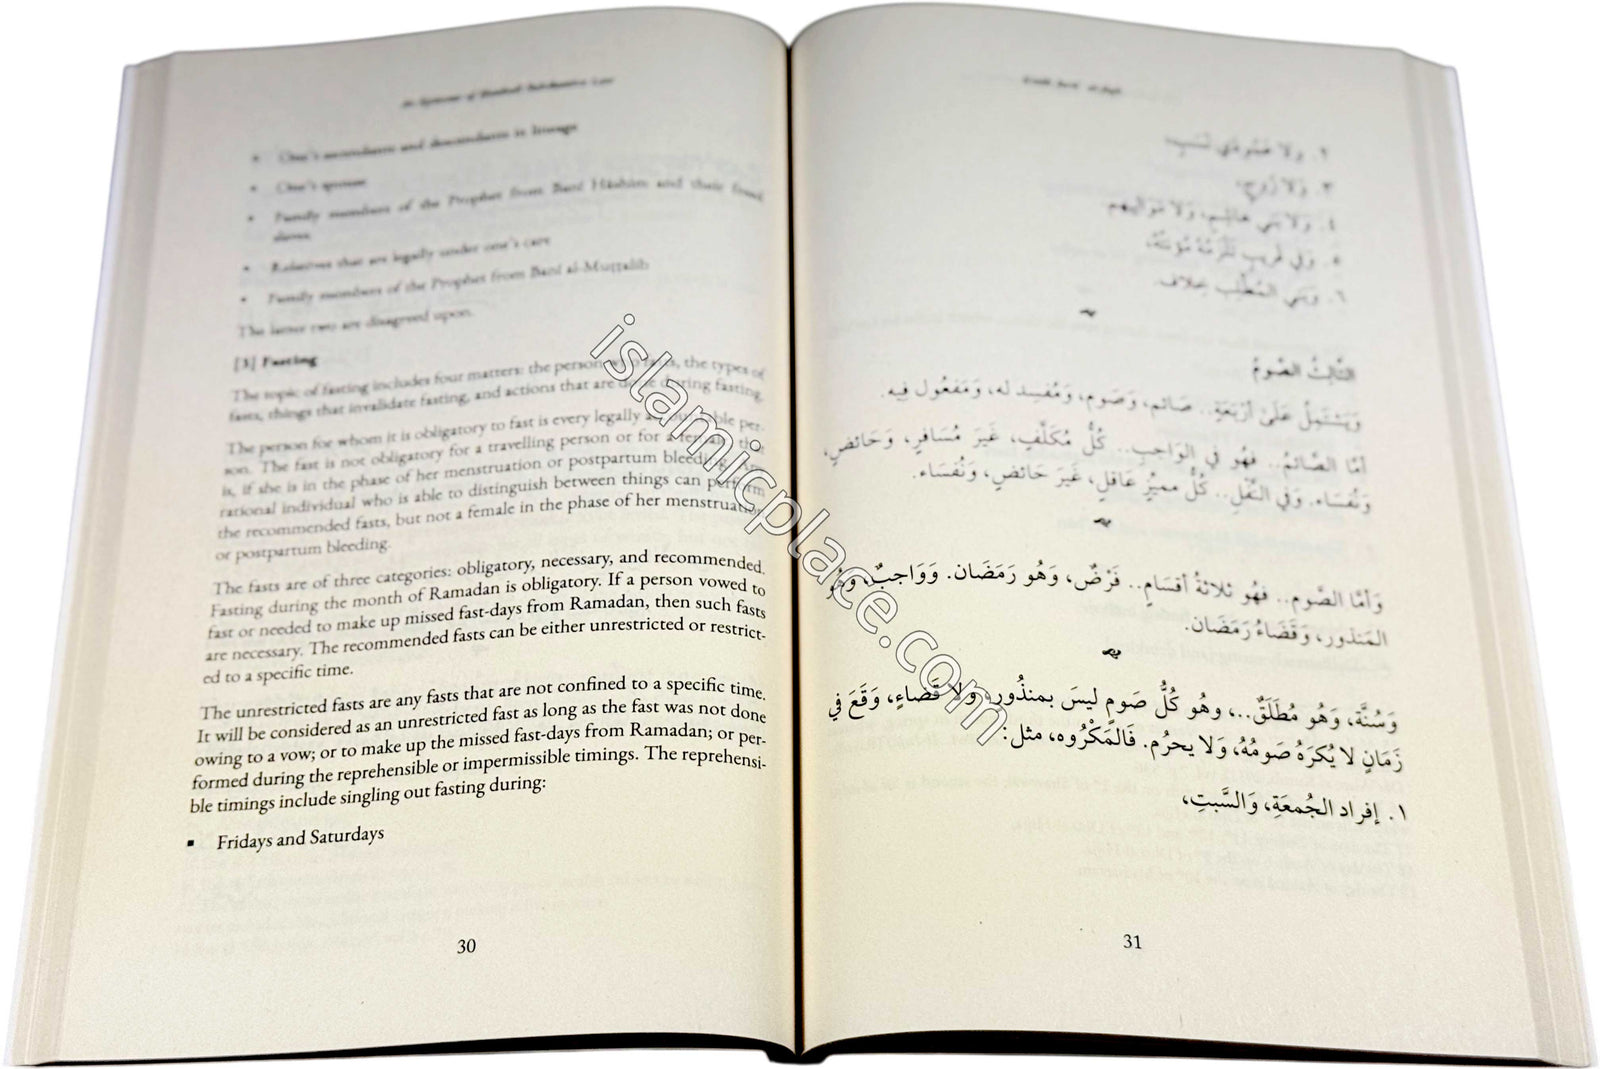 An Epitome of Hanbali Substantive Law
▪ One's ascendants and descendants in lineage
▪ One's spouse
▪ Family members of the Prophet from Banī Hāshim and their freed
slaves
▪ Relatives that are legally under one's care
▪ Family members of the Prophet from Banī al-Muṭṭalib
The latter two are disagreed upon.
[3] Fasting
The topic of fasting includes four matters: the person who fasts, the types of
fasts, things that invalidate fasting, and actions that are done during fasting.
The person for whom it is obligatory to fast is every legally accountable per-
son. The fast is not obligatory for a travelling person or for a female that
is, if she is in the phase of her menstruation or postpartum bleeding. Any
rational individual who is able to distinguish between things can perform
the recommended fasts, but not a female in the phase of her menstruation
or postpartum bleeding.
The fasts are of three categories: obligatory, necessary, and recommended.
Fasting during the month of Ramadan is obligatory. If a person vowed to
fast or needed to make up missed fast-days from Ramadan, then such fasts
are necessary. The recommended fasts can be either unrestricted or restrict-
ed to a specific time.
The unrestricted fasts are any fasts that are not confined to a specific time.
It will be considered as an unrestricted fast as long as the fast was not done
owing to a vow; or to make up the missed fast-days from Ramadan; or per-
formed during the reprehensible or impermissible timings. The reprehensi-
ble timings include singling out fasting during:
▪ Fridays and Saturdays
30
٢. وَلا عَمُودَي نَسَبٍ،
٣. وَلا زَوجٍ،
٤. وَلا بَني هَاشِمٍ، وَلا مَوَاليهم
٥. وَفي قَريبٍ تَلْزَمُهُ مُؤْنَتُهُ،
٦. وَبَني المُطَّلِبِ خِلاف.
الثَّالِثُ الصَّومُ
وَيَشتَمِلُ عَلَىٰ أرْبَعَةٍ.. صَائم، وَصَوم، وَمُفسِد له، وَمَفعُول فِيه.
أمَّا الصَّائمُ.. فهُو فِي الوَاجبِ.. كُلُّ مُكَلَّفٍ، غَيرَ مُسَافرٍ، وَحَائضٍ،
وَنُفسَاء. وَفي النَّفْلِ.. كُلُّ مميزٍ عَاقلٍ، غَيرَ حَائضٍ، وَنُفَسَاء.
وَأمَّا الصَّوم.. فهُو ثلاثةُ أقسَامٍ.. فَرْضٌ، وَهُو رَمَضَان. وَوَاجبٌ، وَهُو
المَنذور، وَقَضَاءُ رَمَضَان.
وَسُنَّة، وَهُو مُطلَقٌ..، وهُو كُلُّ صَومٍ ليسَ بمنذُور، وَلا قَضاءٍ، وَقَعَ في
زَمَانٍ لا يُكرَهُ صَومُهُ، وَلا يحرُم. فَالمَكْرُوه، مثل:
١. إفراد الجُمعَةِ، وَالسَّبتِ،
31
islamicplace.com